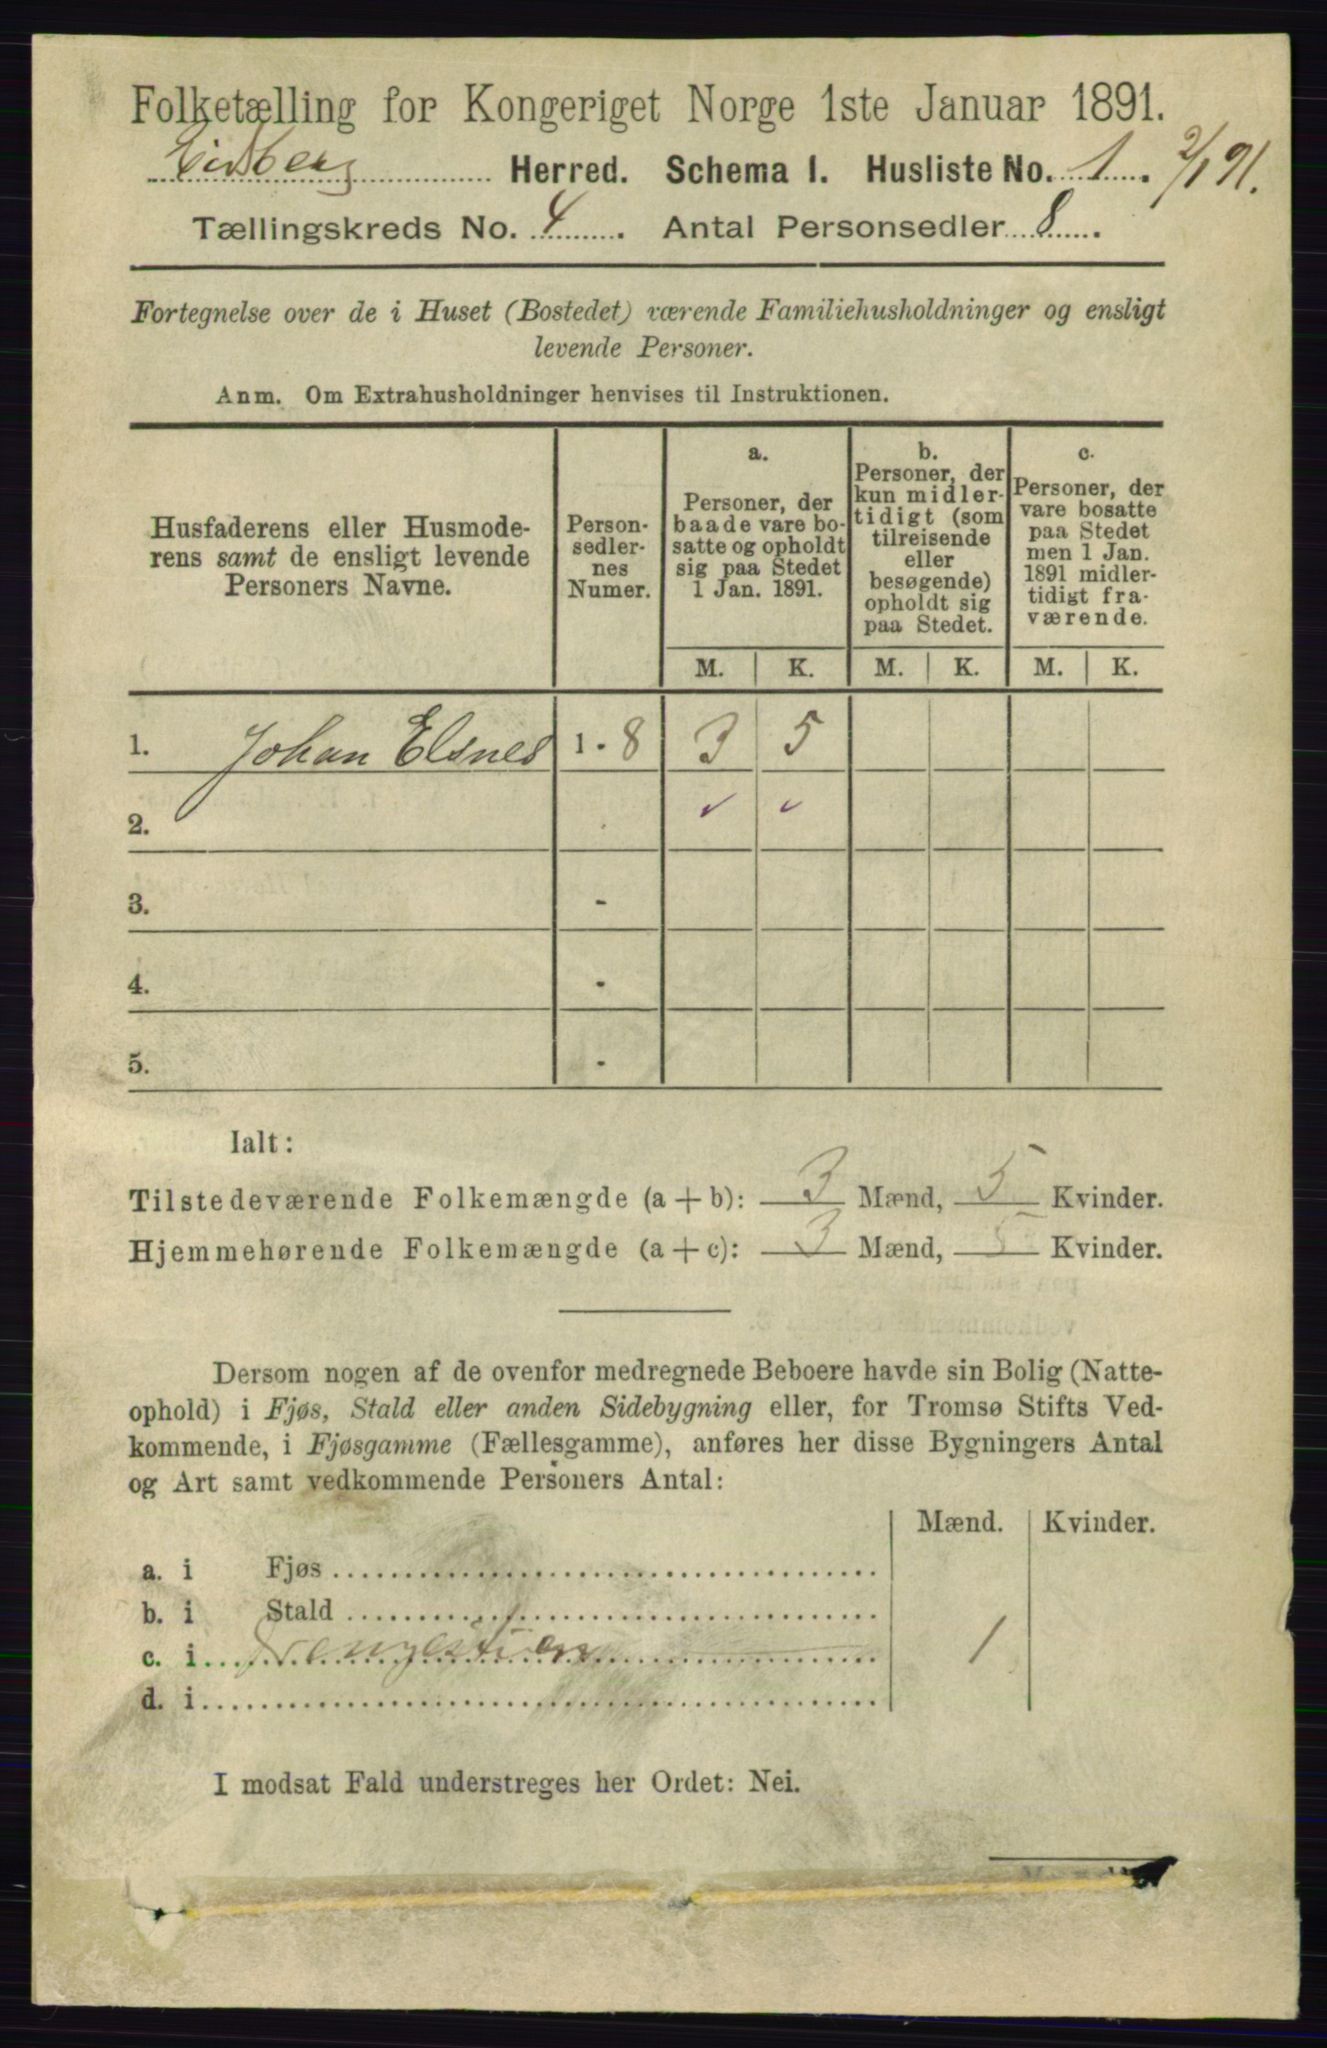 Folketælling for Kongeriget Norge 1ste Januar 1891.
Eidsberg Herred. Schema I. Husliste No. 1. 2/1 91.
Tællingskreds No. 4. Antal Personsedler 8.
Fortegnelse over de i Huset (Bostedet) værende Familiehusholdninger og ensligt
levende Personer.
Anm. Om Extrahusholdninger henvises til Instruktionen.
Husfaderens eller Husmode-
rens samt de ensligt levende
Personers Navne.
Person-
sedler-
nes
Numer.
a.
Personer, der
baade vare bo-
satte og opholdt
sig paa Stedet
1 Jan. 1891.
b.
Personer, der
kun midler-
tidigt (som
tilreisende
eller
besøgende)
opholdt sig
paa Stedet.
c.
Personer, der
vare bosatte
paa Stedet
men 1 Jan.
1891 midler-
tidigt fra-
værende.
M. K. M. K. M. K.
1. Johan Elsnes 1 - 8 3 5
2.
3. -
4. -
5. -
Ialt:
Tilstedeværende Folkemængde (a + b): 3 Mænd, 5 Kvinder.
Hjemmehørende Folkemængde (a + c): 3 Mænd, 5 Kvinder.
Dersom nogen af de ovenfor medregnede Beboere havde sin Bolig (Natte-
ophold) i Fjøs, Stald eller anden Sidebygning eller, for Tromsø Stifts Ved-
kommende, i Fjøsgamme (Fællesgamme), anføres her disse Bygningers Antal
og Art samt vedkommende Personers Antal:
Mænd. Kvinder.
a. i Fjøs
b. i Stald
c. i 1
d. i
I modsat Fald understreges her Ordet: Nei.